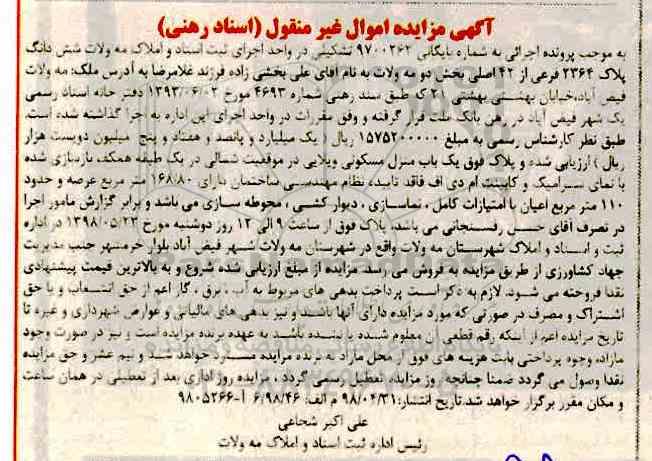 آگهی مزایده اموال غیر منقول (اسناد رهنی)
به موجب پرونده اجرائی به شماره بایگانی ۹۷۰۰۲۶۲ تشکیلی در واحد اجرای ثبت اسناد و املاک مه ولات شش دانگ
پلاک ۲۳۶۴ فرعی از ۴۲ اصلی بخش دو مه ولات به نام آقای علی بخشی زاده فرزند غلامرضا به آدرس ملک: مه ولات
فیض آباد،خیابان بهشتی بهشتی ۲۱ که طبق سند رهنی شماره ۴۶۹۳ مورخ ۱۳۹۳/۰۶/۰۲ دفتر خانه اسناد رسمی
یک شهر فیض آباد در رهن بانک ملت قرار گرفته و وفق مقررات در واحد اجرای این اداره به اجرا گذاشته شده است.
طبق نظر کارشناس رسمی به مبلغ ۱۵۷۵۲۰۰۰۰۰ ریال ( یک میلیارد و پانصد و هفتاد و پنج میلیون دویست هزار
ریال ) ارزیابی شده و پلاک فوق یک باب منزل مسکونی ویلایی در موقعیت شمالی در یک طبقه همکف بازسازی شده
با نمای سرامیک و کابینت ام دی اف فاقد تایید، نظام مهندسی ساختمان دارای ۱۶۸/۸۰ متر مربع عرصه و حدود
۱۱۰ متر مربع اعیان با امتیازات کامل ، نماسازی ، دیوار کشی ، محوطه سازی می باشد و برابر گزارش مامور اجرا
در تصرف آقای حسن رفسنجانی می باشد، پلاک فوق از ساعت ۹ الی ۱۲ روز دوشنبه مورخ ۱۳۹۸/۰۵/۲۳ در اداره
ثبت و اسناد و املاک شهرستان مه ولات واقع در شهرستان مه ولات شهر فیض آباد بلوار خرمشهر جنب مدیریت
جهاد کشاورزی از طریق مزایده به فروش می رسد. مزایده از مبلغ ارزیابی شده شروع و به بالاترین قیمت پیشنهادی
نقدا فروخته می شود. لازم به ذکر است پرداخت بدهی های مربوط به آب ، برق ، گاز اعم از حق انشعاب و یا حق
اشتراک و مصرف در صورتی که مورد مزایده دارای آنها باشند و نیز بدهی های مالیاتی و عوارض شهرداری و غیره تا
تاریخ مزایده اعم از اینکه رقم قطعی آن معلوم شده یا نشده باشد به عهده برنده مزایده است و نیز در صورت وجود
مازاده وجوه پرداختی بابت هزینه های فوق از محل مازاد به برنده مزایده مسترد خواهد شد و نیم عشر و حق مزایده
نقدا وصول می گردد ضمنا چنانچه روز مزایده تعطیل رسمی گردد ، مزایده روز اداری بعد از تعطیلی در همان ساعت
و مکان مقرر برگزار خواهد شد تاریخ انتشار: ۹۸/۰۴/۳۱ م الف: ۶/۹۸/۴۶ آ-۹۸۰۵۲۶۶
علی اکبر شجاعی
رئیس اداره ثبت اسناد و املاک مه ولات